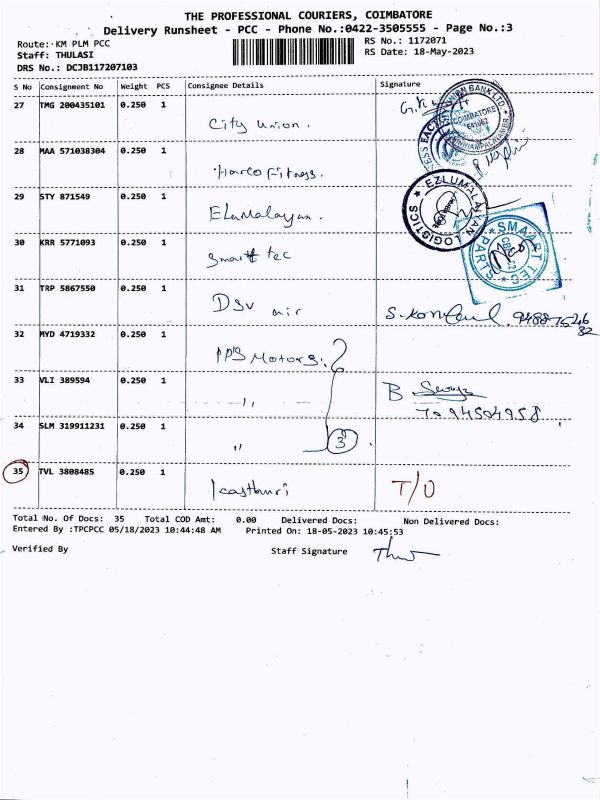 THE PROFESSIONAL COURIERS, COIMBATORE
Delivery Runsheet - PCC - Phone No.:0422-3505555 - Page No.:3
Route: KM PLM PCC
RS No.: 1172071
Staff: THULASI
RS Date: 18-May-2023
DRS No.: DCJB117207103
S No Consignment No Weight PCS Consignee Details Signature
27 TMG 200435101 0.250 1 City Union.
COIMBATORE
28 MAA 571038304 0.250 1 Harco Fitness.
29 STY 871549 0.250 1 Ezlumalayan.
EZLUMALAYAN LOGISTICS
30 KRR 5771093 0.250 1 Smart tec
SMAART TEC PARTS
31 TRP 5867550 0.250 1 DSV air
32 MYD 4719332 0.250 1 PPS Motors.
33 VLI 389594 0.250 1 "
B
34 SLM 319911231 0.250 1 " 3
35 TVL 3808485 0.250 1 Kasthuri T/O
Total No. Of Docs: 35 Total COD Amt: 0.00 Delivered Docs: Non Delivered Docs:
Entered By :TPCPCC 05/18/2023 10:44:48 AM Printed On: 18-05-2023 10:45:53
Verified By Staff Signature